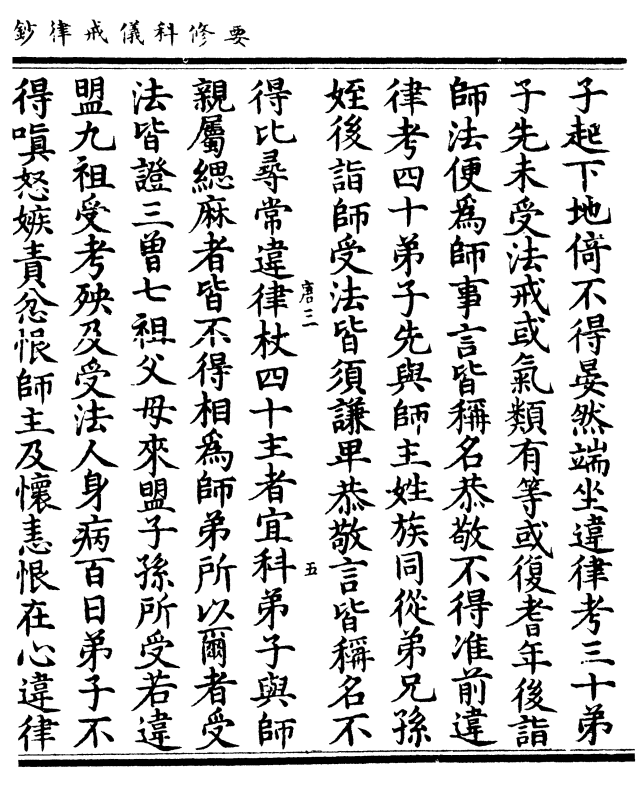 要修科儀戒律鈔
子起下地倚不得晏然端坐違律考三十弟
子先未受法戒或氣類有等或復耆年後詣
師法便為師事言皆稱名恭敬不得准前違
律考四十弟子先與師主姓族同從弟兄孫
姪後詣師受法皆須謙卑恭敬言皆稱名不
唐三
五
得比尋常違律杖四十主者宜科弟子與師
親屬緦麻者皆不得相為師弟所以爾者受
法皆證三曾七祖父母來盟子孫所受若違
盟九祖受考殃及受法人身病百日弟子不
得嗔怒嫉責忿恨師主及懷恚恨在心違律